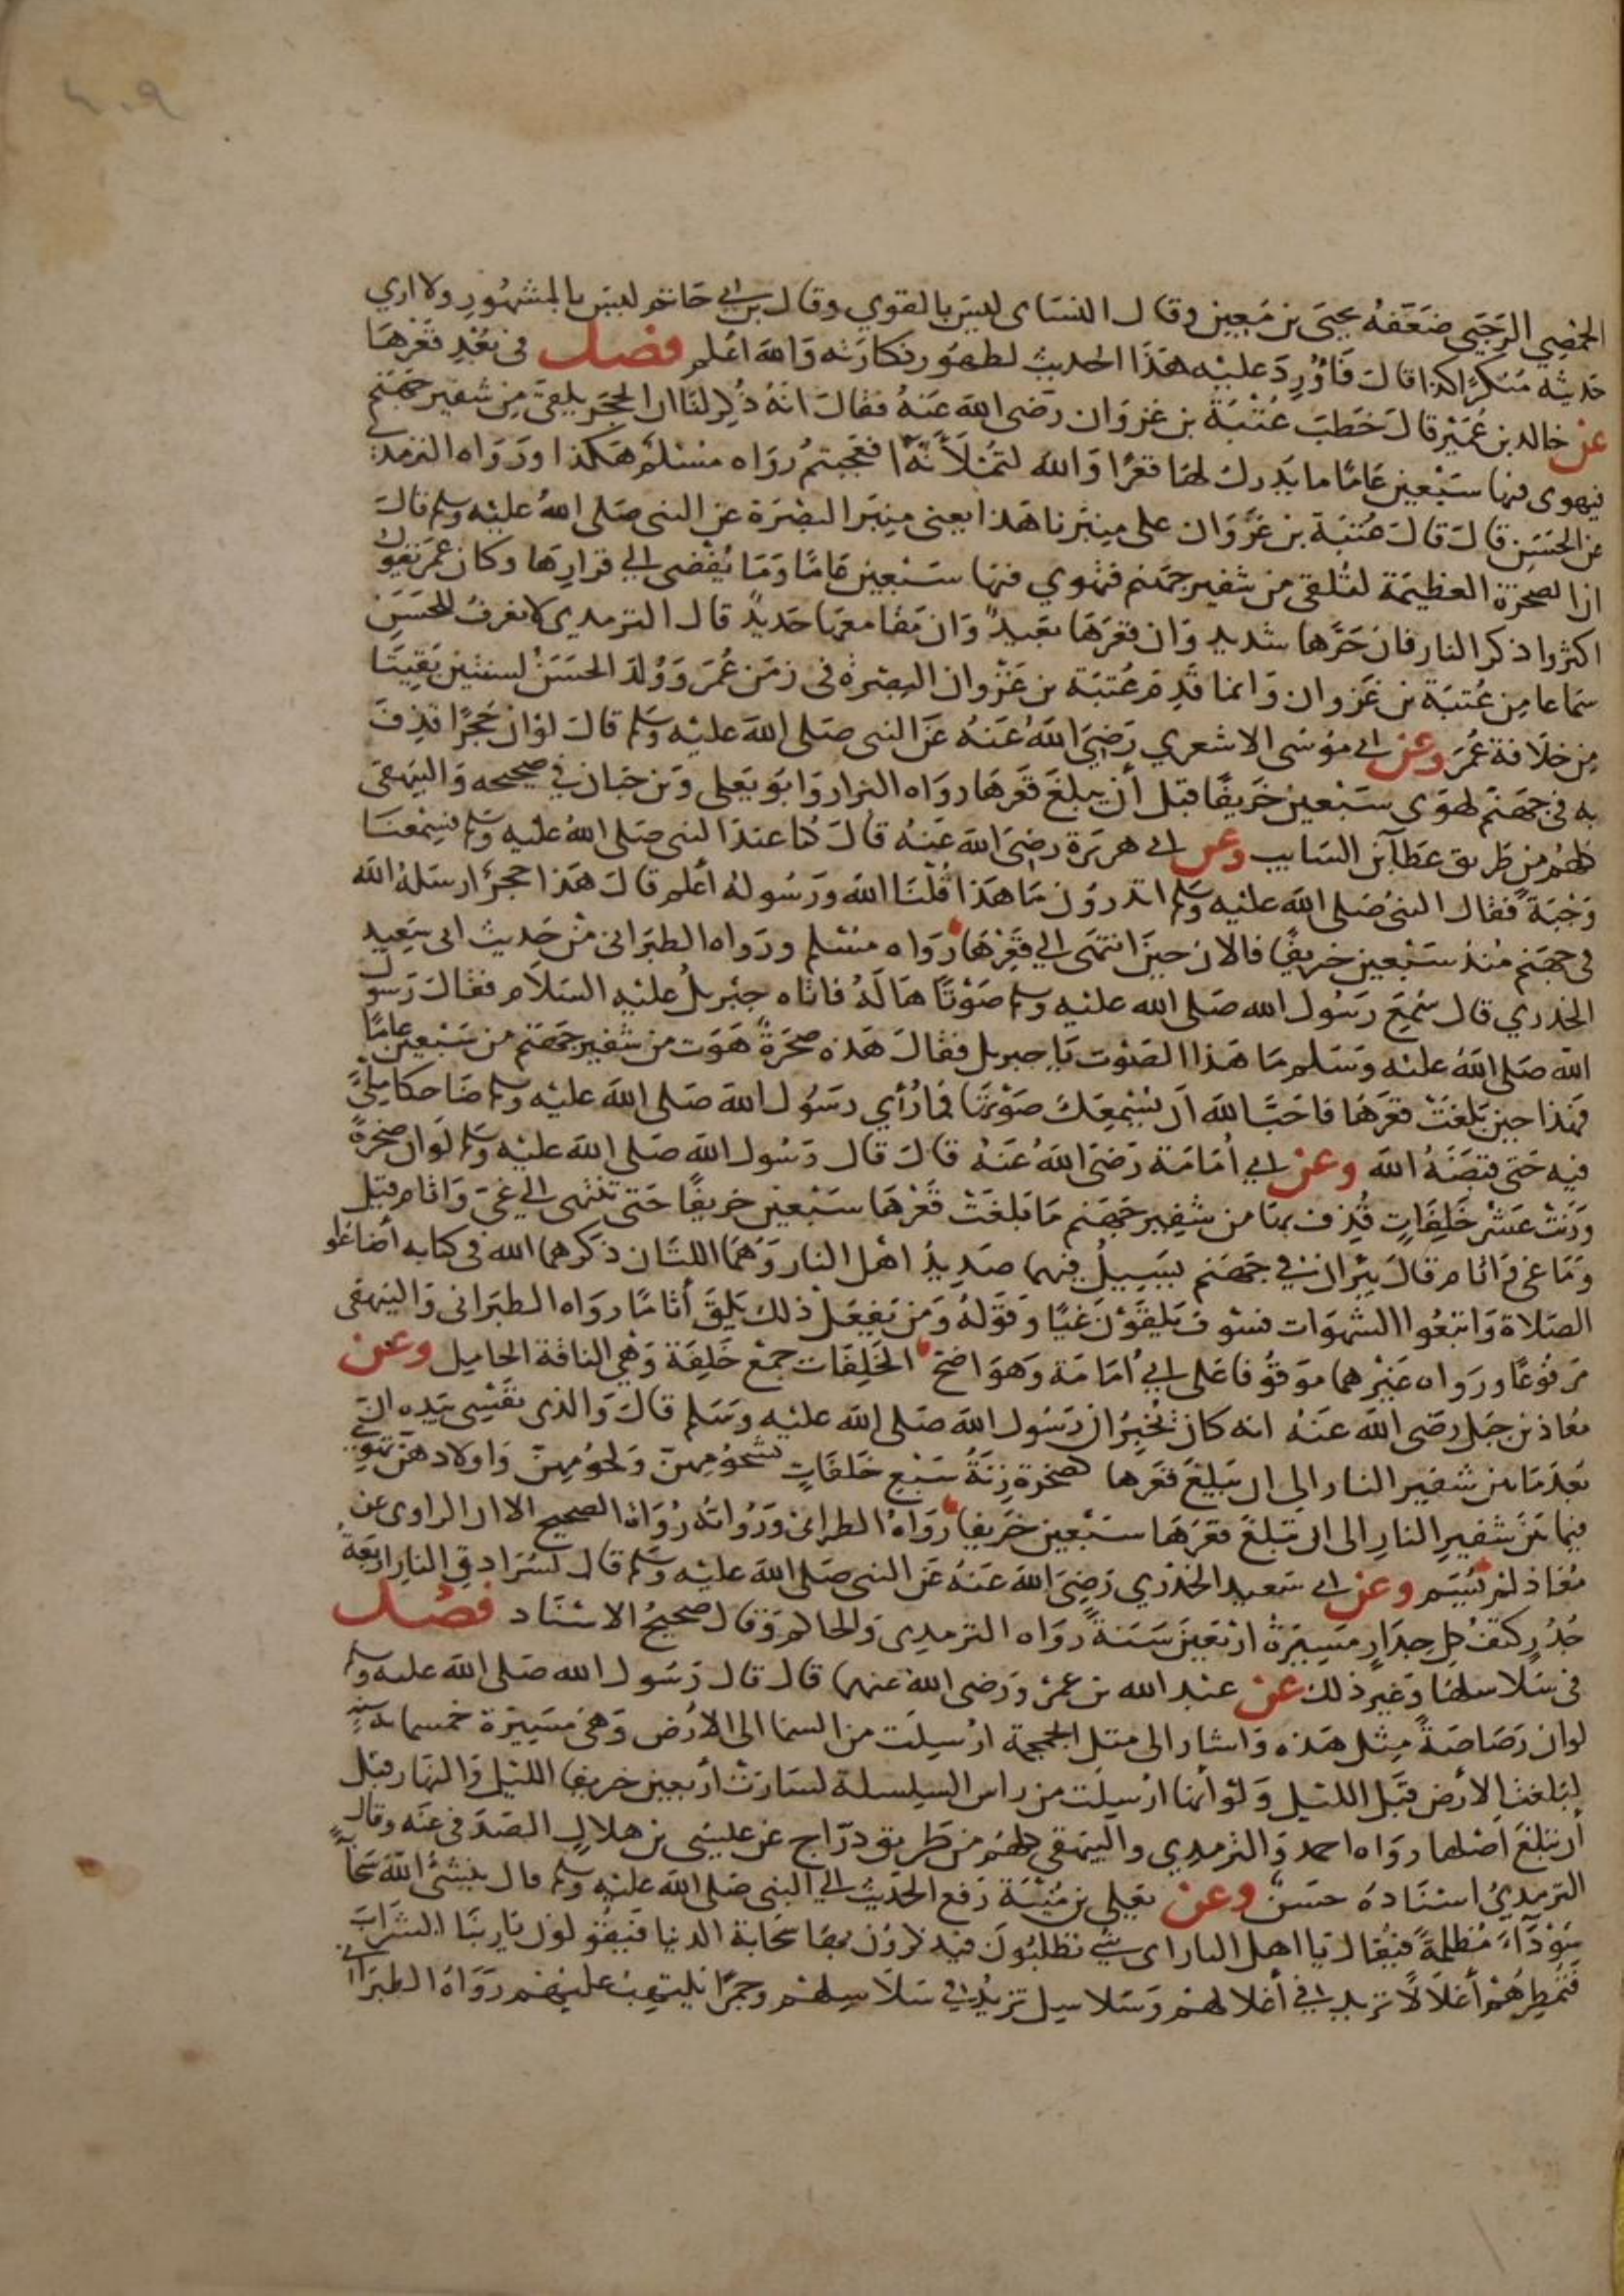 ٤٠٩
الحمصي الرحبي ضعفه يحيى بن معين وقال النسائى ليس بالقوي وقال بن ابي حاتم ليس بالمشهور ولا اري
حديثه منكرا كذا قال فاورد عليه هذا الحديث لظهور نكارته والله اعلم فصل فى بعد قعرها
عن خالد بن عمير قال خطب عتبة بن غزوان رضى الله عنه فقال انه ذكر لنا ان الحجر يلقى من شفير جهنم
فيهوى فيها سبعين عاما ما يدرك لها قعرا والله لتملأنه افعجبتم رواه مسلم هكذا ورواه الترمذي
عن الحسن قال قال عتبة بن غزوان على منبرنا هذا يعنى منبر البصرة عن النبى صلى الله عليه وسلم قال
ان الصخرة العظيمة لتلقى من شفير جهنم فتهوي فيها سبعين عاما وما تفضى الي قرارها وكان عمر يقول
اكثروا ذكر النار فان حرها شديد وان قعرها بعيد وان مقامعها حديد قال الترمدى لا نعرف للحسن
سماعا من عتبة بن غزوان وانما قدم عتبة بن غزوان البصرة فى زمن عمر وولد الحسن لسنتين بقيتا
من خلافة عمر وعن ابي موسى الاشعري رضي الله عنه عن النبى صلى الله عليه وسلم قال لو ان حجرا قذف
به فى جهنم لهوى سبعين خريفا قبل أن يبلغ قعرها رواه البزار وابو يعلى وبن حبان في صحيحه والبيهقى
كلهم من طريق عطآ بن السايب وعن ابي هريرة رضى الله عنه قال كنا عند النبى صلى الله عليه وسلم فسمعنا
وجبة فقال النبى صلى الله عليه وسلم اتدرون ما هذا قلنا الله ورسوله أعلم قال هذا حجر ارسله الله
فى جهنم منذ سبعين خريفا فالان حين انتهى الي قعرها رواه مسلم ورواه الطبرانى من حديث ابى سعيد
الخدري قال سمع رسول الله صلى الله عليه وسلم صوتا هاله فاتاه جبريل عليه السلام فقال رسول
الله صلى الله عليه وسلم ما هذا الصوت يا جبريل فقال هذه صخرة هوت من شفير جهنم من سبعين عاما
فهذا حين بلغت قعرها فاحب الله ان يسمعك صوتها فما رأي رسول الله صلى الله عليه وسلم ضاحكا ملئ
فيه حتى قبضه الله وعن ابي أمامة رضى الله عنه قال قال رسول الله صلى الله عليه وسلم لو ان صخرة
وزنت عشر خلفات قذف بها من شفير جهنم ما بلغت قعرها سبعين خريفا حتى تنتهى الي غى واثام قيل
وما غى واثام قال بيران في جهنم يسيل فيهما صديد اهل النار وهما اللتان ذكرهما الله فى كتابه أضاعوا
الصلاة واتبعوا الشهوات فسوف يلقون غيا وقوله ومن يفعل ذلك يلق أثاما رواه الطبرانى والبيهقى
مرفوعا ورواه غيرهما موقوفا على ابي أمامة وهو اضح الخلفات جمع خلفة وهي الناقة الحامل وعن
معاذ بن جبل رضى الله عنه انه كان يخبر ان رسول الله صلى الله عليه وسلم قال والذى نفسى بيده ان
بعد ما بين شفير النار الى ان يبلغ قعرها لصخرة زنة سبع خلفات بشحومهن ولحومهن واولادهن تهوي
فيما بين شفير النار الى ان تبلغ قعرها سبعين خريفا رواه الطبرانى ورواته رواة الصحيح الا ان الراوى عن
معاذ لم يسم وعن ابي سعيد الخدري رضى الله عنه عن النبى صلى الله عليه وسلم قال لسرادق النار اربعة
جدر كثف كل جدار مسيرة اربعين سنة رواه الترمدى والحاكم وقال صحيح الاسناد فصل
فى سلاسلها وغير ذلك عن عبد الله بن عمرو رضى الله عنهما قال قال رسول الله صلى الله عليه وسلم
لو ان رصاصة مثل هذه واشار الى مثل الجمجمة ارسلت من السما الى الارض وهى مسيرة خمسماية سنة
لبلغت الارض قبل الليل ولو أنها ارسلت من راس السلسلة لسارت أربعين خريفا الليل والنهار قبل
أن تبلغ اصلها رواه احمد والترمدي والبيهقي كلهم من طريق دراج عن عيسى بن هلال الصدفى عنه وقال
الترمدي اسناده حسن وعن يعلي بن منية رفع الحديث الي النبى صلى الله عليه وسلم قال ينشئ الله سحابة
سودآء مظلمة فيقال يا اهل النار اى شي تطلبون فيذكرون بها سحابة الدنيا فيقولون يا ربنا الشراب
فتمطرهم أغلالا تزيد في أغلالهم وسلاسل تزيد في سلاسلهم وجمرا يلتهب عليهم رواه الطبرانى